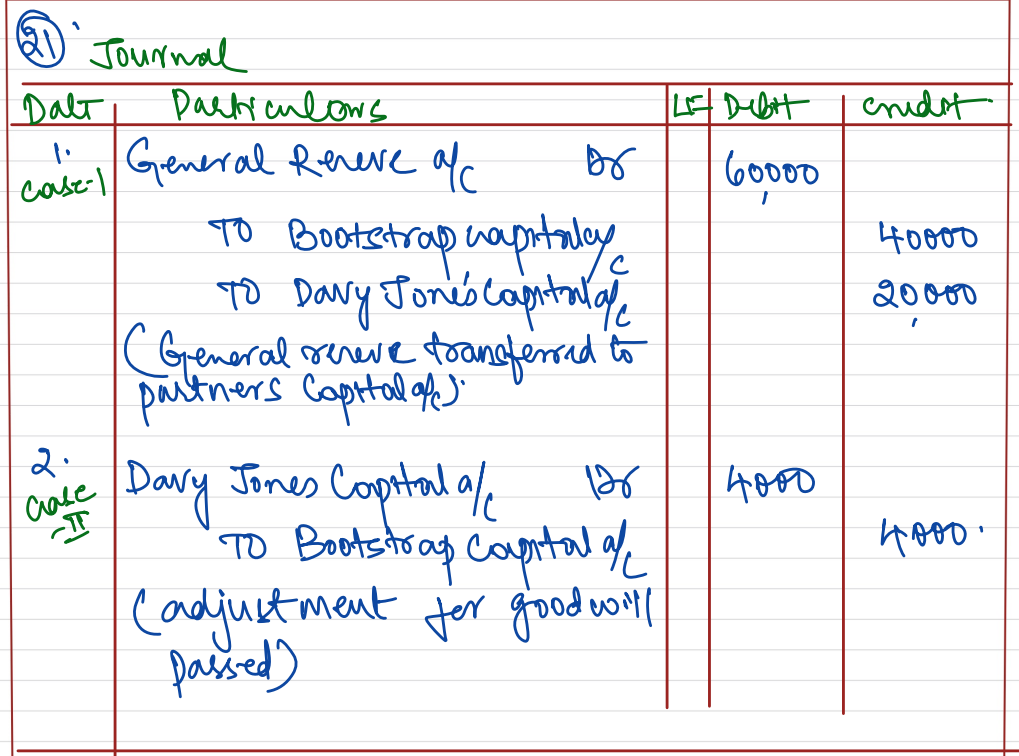 21. Journal
Date Particulars LF Debit Credit
1. General Reserve a/c Dr 60,000
Case-1
To Bootstrap capital a/c 40000
To Davy Jones Capital a/c 20,000
(General reserve transferred to
partners Capital a/c).
2. Davy Jones Capital a/c Dr 4000
Case-II
To Bootstrap Capital a/c 4000.
(adjustment for goodwill
passed)